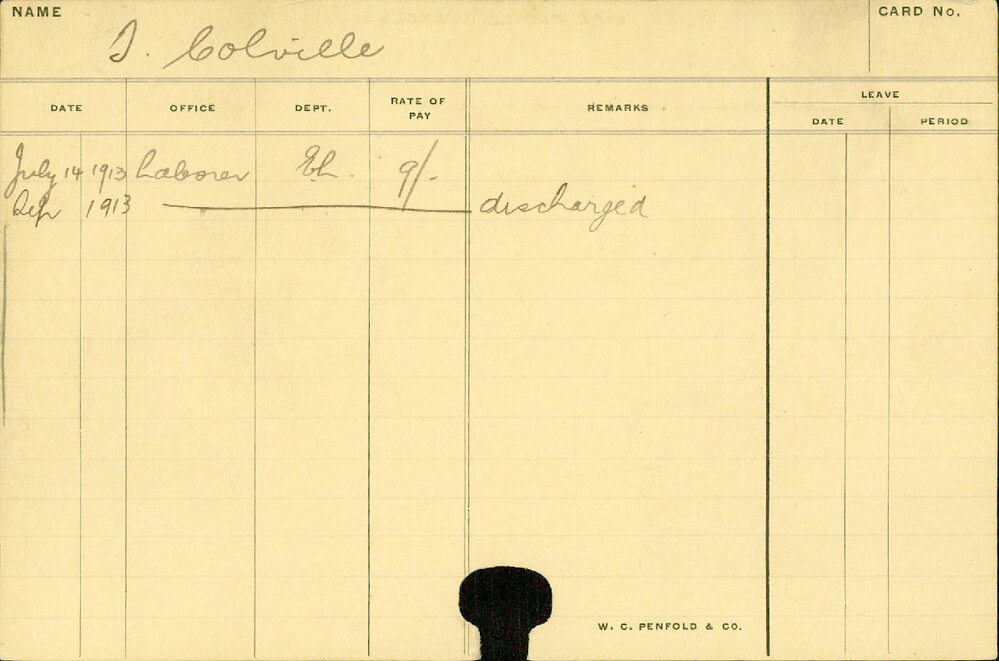 NAME
CARD No.
Colville
DATE OFFICE DEPT. RATE OF PAY REMARKS LEAVE
DATE PERIOD
July 14 1913 Laborer 9/-
Sep 1913 discharged
W. C. PENFOLD & CO.